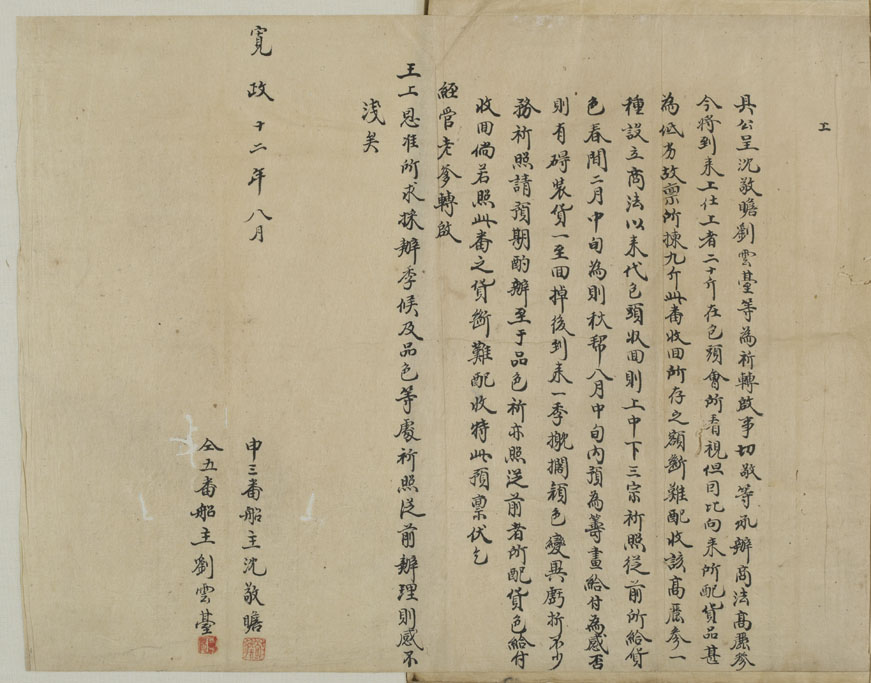 具公呈沈敬瞻劉雲臺等為祈轉啟事切敬等承辦商法高麗參
今將到来上仕工者二十斤在包頭會所看視但因比向来所配貨品甚
為低劣故稟所揀九斤此番收回所存之額斷難配收該高麗參一
種設立商法以来代包頭收回則上中下三宗祈照從前所給貨
色春間二月中旬為則秋帮八月中旬内預為籌畫給付為感否
則有碍装貨一至回掉後到来一季擱顔色變異虧折不少
務祈照請預期酌辦至于品色祈亦照從前者所配貨色給付
收回倘若照此番之貨斷難配收特此預稟伏乞
經管老爹轉啟
王上恩准所求採辦季候及品色等處祈照從前辦理則感不
淺矣
寛政十二年八月
申三番船主沈敬瞻
仝五番船主劉雲臺